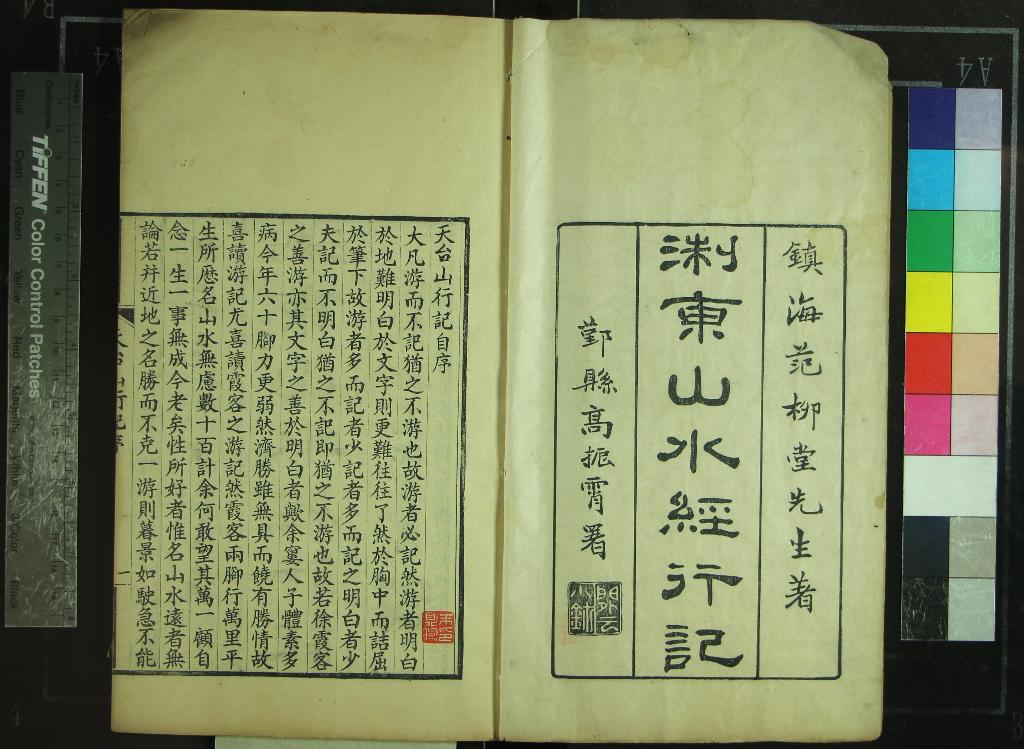 鎮海范柳堂先生著
浙東山水經行記
鄞縣高振霄署
天台山行記自序
大凡游而不記猶之不游也故游者必記然游者明白
於地難明白於文字則更難往往了然於胸中而詰屈
於筆下故游者多而記者少記者多而記之明白者少
夫記而不明白猶之不記即猶之不游也故若徐霞客
之善游亦其文字之善於明白者歟余窶人子體素多
病今年六十腳力更弱然濟勝雖無具而饒有勝情故
喜讀游記尤喜讀霞客之游記然霞客兩腳行萬里平
生所歷名山水無慮數十百計余何敢望其萬一顧自
念一生一事無成今老矣性所好者惟名山水遠者無
論若并近地之名勝而不克一游則暮景如駛急不能
天台山行記序
一
TIFFEN Color Control Patches
Blue
Cyan
Green
Yellow
Red
Magenta
White
3/Color
Black
A4
A4